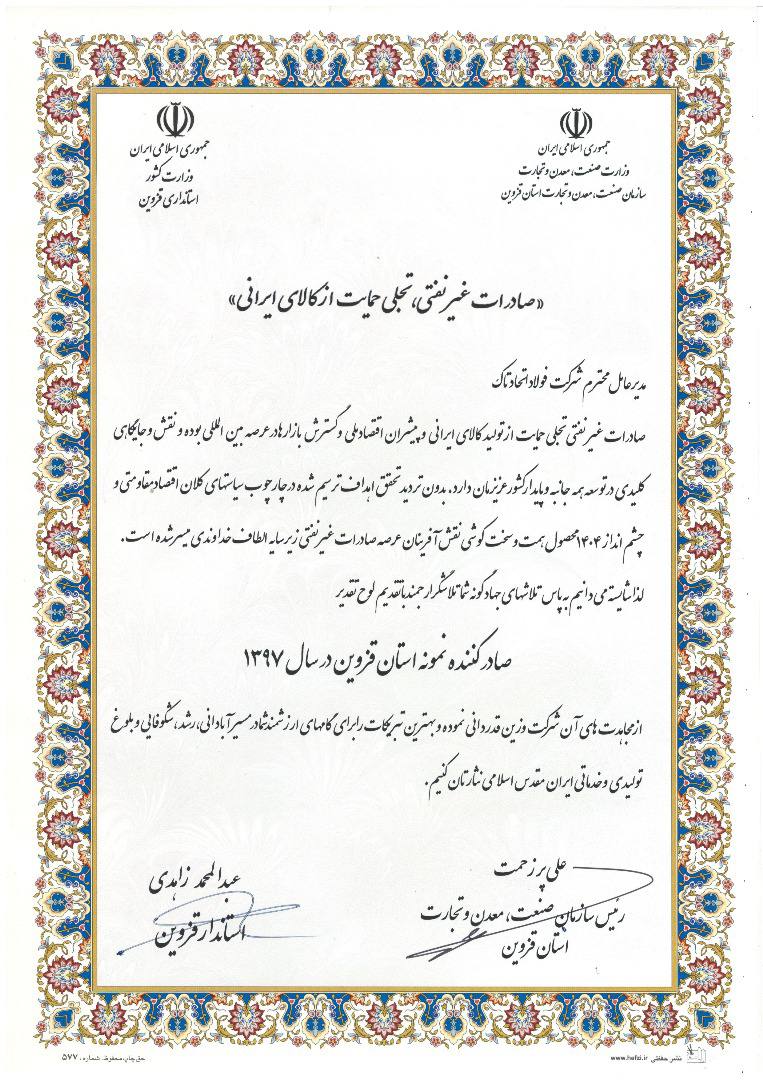 جمهوری اسلامی ایران
وزارت صنعت، معدن و تجارت
سازمان صنعت، معدن و تجارت استان قزوین
جمهوری اسلامی ایران
وزارت کشور
استانداری قزوین
«صادرات غیر نفتی، تجلی حمایت از کالای ایرانی»
مدیر عامل محترم شرکت فولاد اتحاد تاک
صادرات غیر نفتی تجلی حمایت از تولید کالای ایرانی و پیشران اقتصاد ملی و گسترش بازارها در عرصه بین المللی بوده و نقش و جایگاهی
کلیدی در توسعه همه جانبه و پایدار کشور عزیزمان دارد. بدون تردید تحقق اهداف ترسیم شده در چارچوب سیاستهای کلان اقتصاد مقاومتی و
چشم انداز ۱۴۰۴ محصول همت و سخت کوشی نقش آفرینان عرصه صادرات غیر نفتی زیر سایه الطاف خداوندی میسر شده است.
لذا شایسته می دانیم به پاس تلاشهای جهادگونه شما تلاشگر ارجمند با تقدیم لوح تقدیر
صادر کننده نمونه استان قزوین در سال ۱۳۹۷
از مجاهدت های آن شرکت وزین قدردانی نموده و بهترین تبریکات را برای گامهای ارزشمند شما در مسیر آبادانی، رشد، شکوفایی و بلوغ
تولیدی و خدماتی ایران مقدس اسلامی نثارتان کنیم.
علی پرزحمت
رئیس سازمان صنعت، معدن و تجارت
استان قزوین
عبدالمحمد زاهدی
استاندار قزوین
نشر حفظی www.hafzi.ir
حق چاپ محفوظ. شماره: ۵۷۷